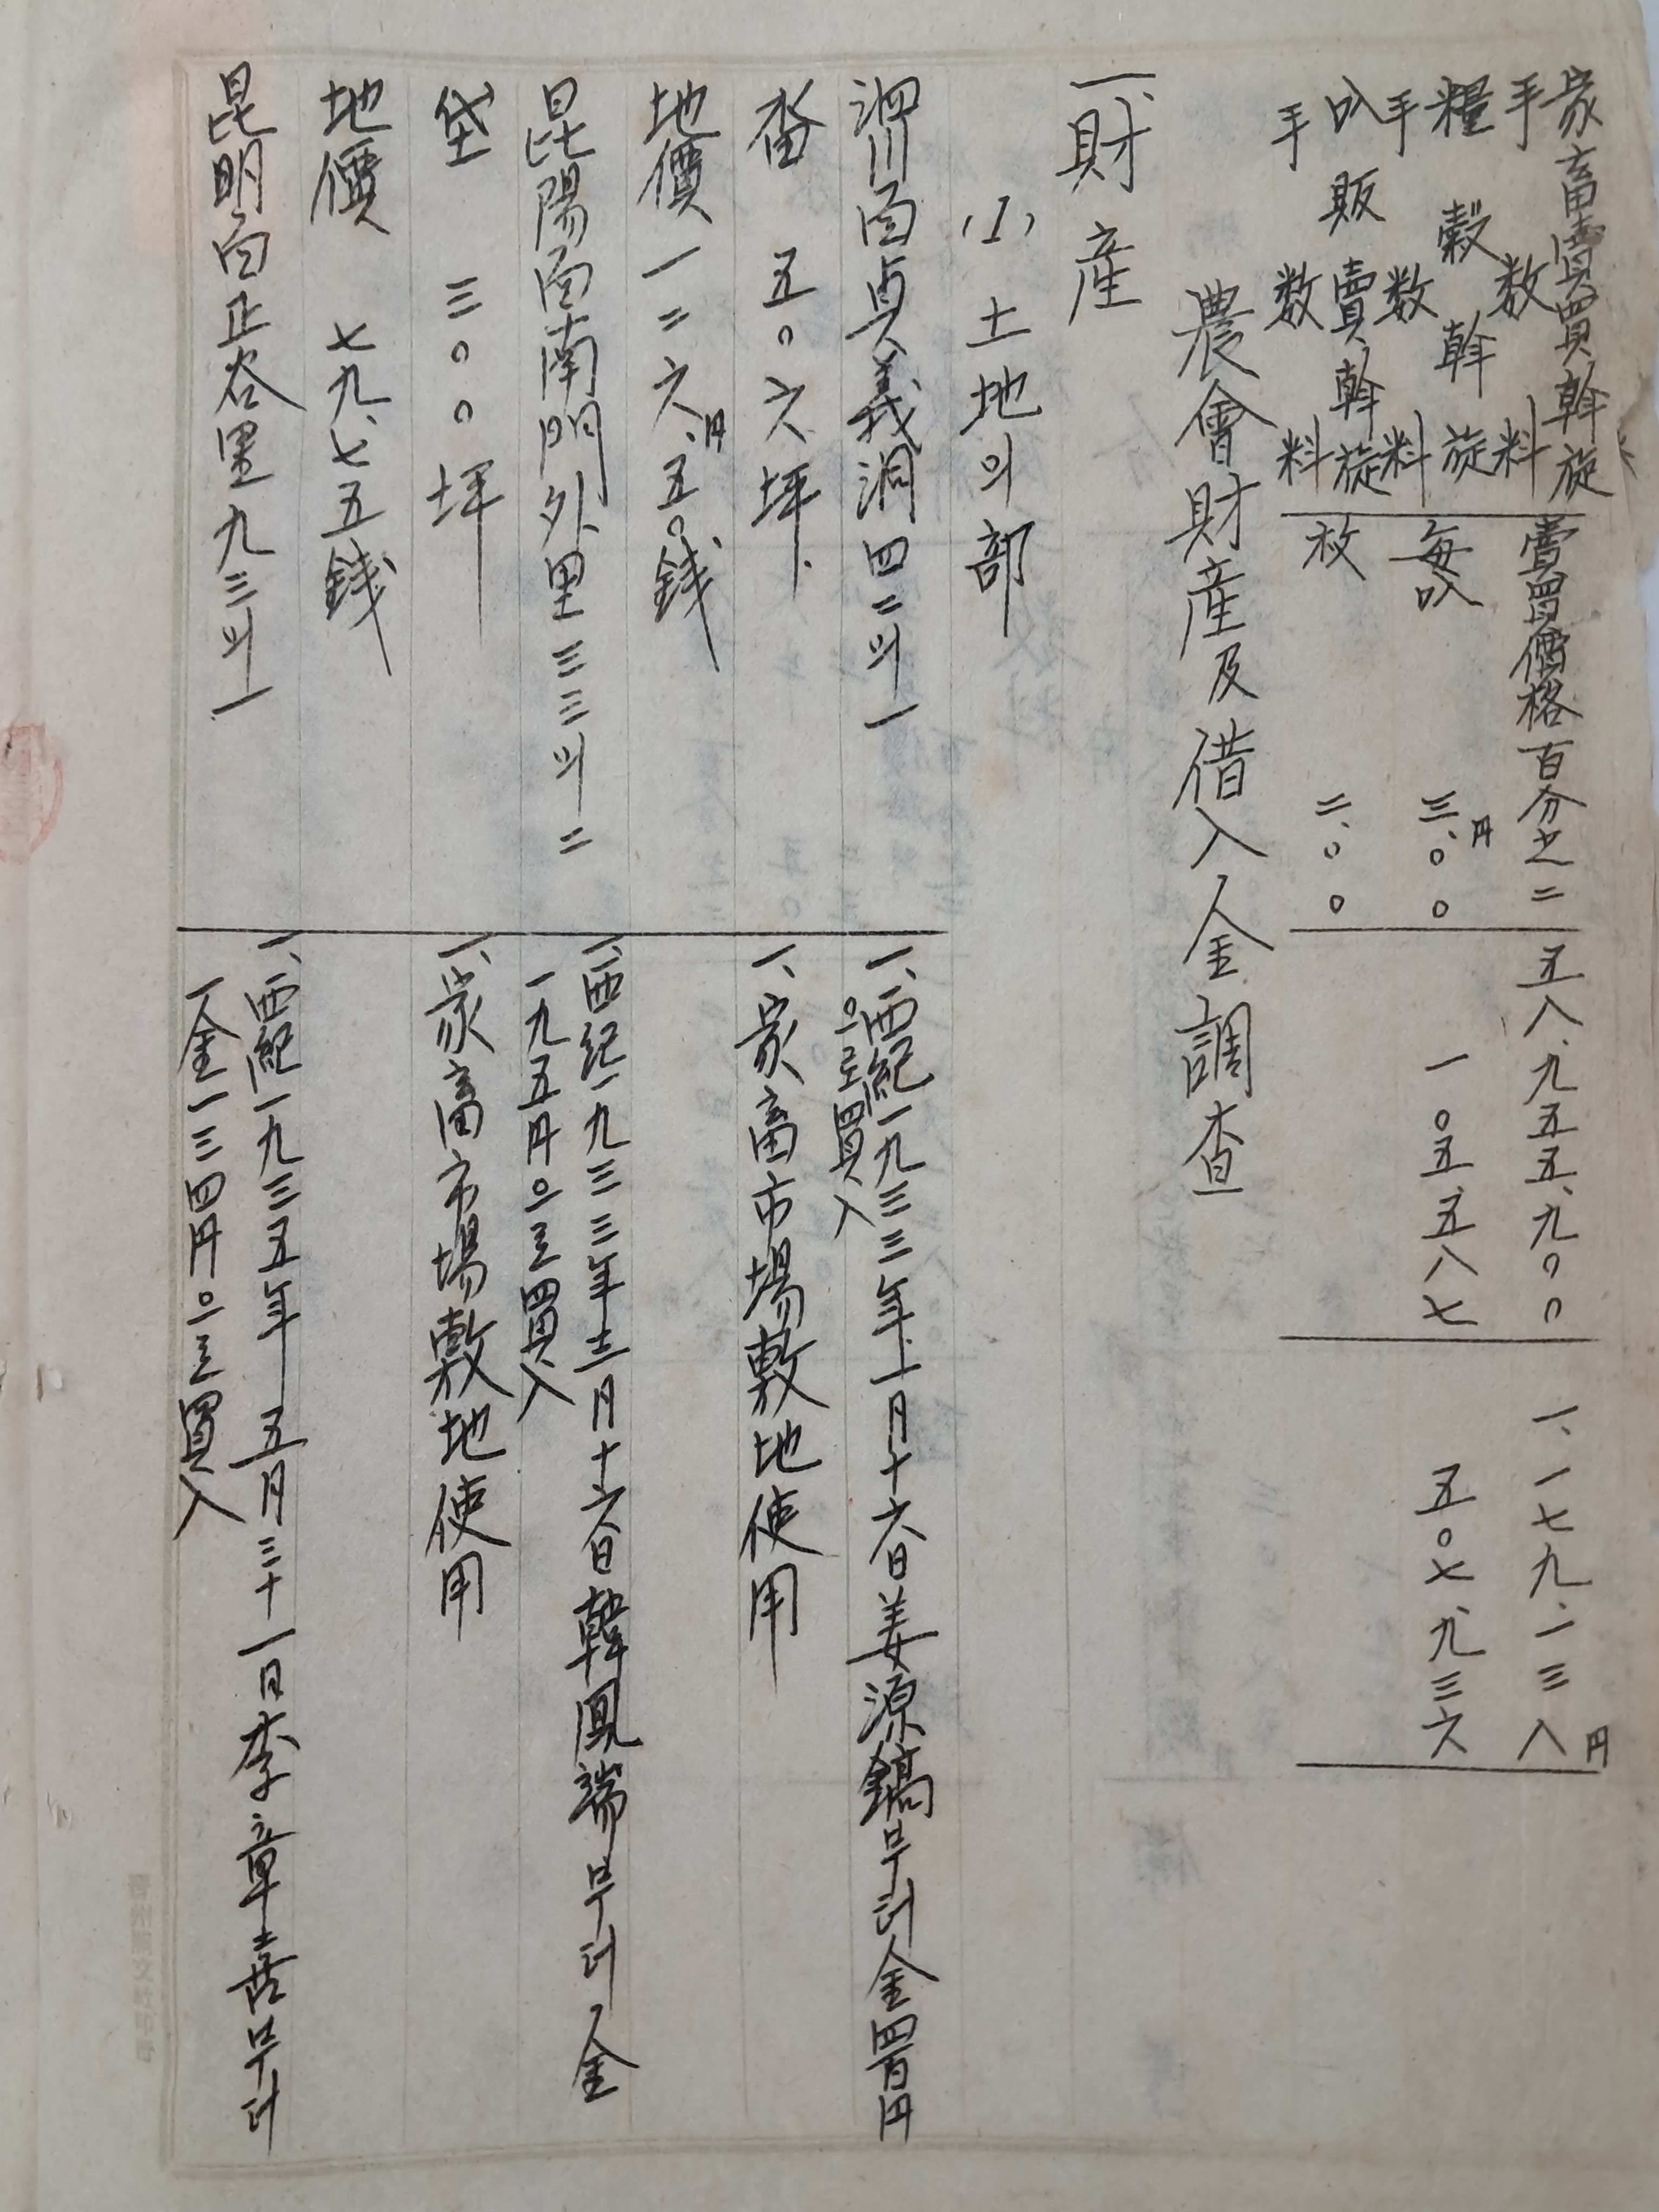 家畜賣買斡旋
手数料
賣買價格百分之二
五八、九五五、九〇〇
一、一七九、一三八円
糧穀斡旋
手数料
每叺
三円、〇〇
一〇五、五八七
五〇七、九三六
叺販賣斡旋
手数料
枚
二、〇〇
農會財産及借入金調査
一、財産
(1) 土地의部
泗川面貞義洞四二의一
一、西紀一九三三年十一月十六日姜源鎬부터金四百円
으로買入
畓 五〇六坪
一、家畜市場敷地使用
地價 一二六円、五〇錢
昆陽面南門外里三三三의二
一、西紀一九三三年十二月十六日韓鳳端부터金
一九五円으로買入
垈 三〇〇坪
一、家畜市場敷地使用
地價 七九、七五錢
昆明面正谷里九三의一
一、西紀一九三五年五月三十一日李章喜부터
一金一三四円으로買入